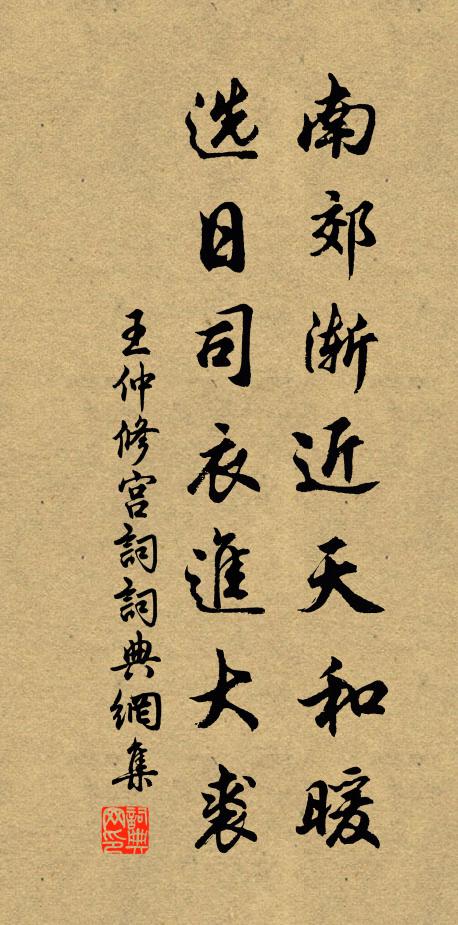 南郊渐近天和暖
选日司衣進大裘
王仲修宫詞詞典網集
詞典网印